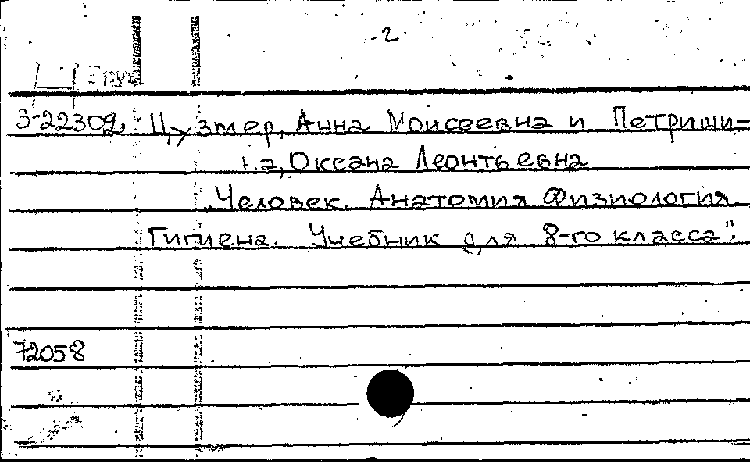 2
3-22309. Цузмер, Анна Моисеевна и Петриши-
на, Оксана Леонтьевна
"Человек. Анатомия Физиология
Гигиена. Учебник для 8-го класса".
72058